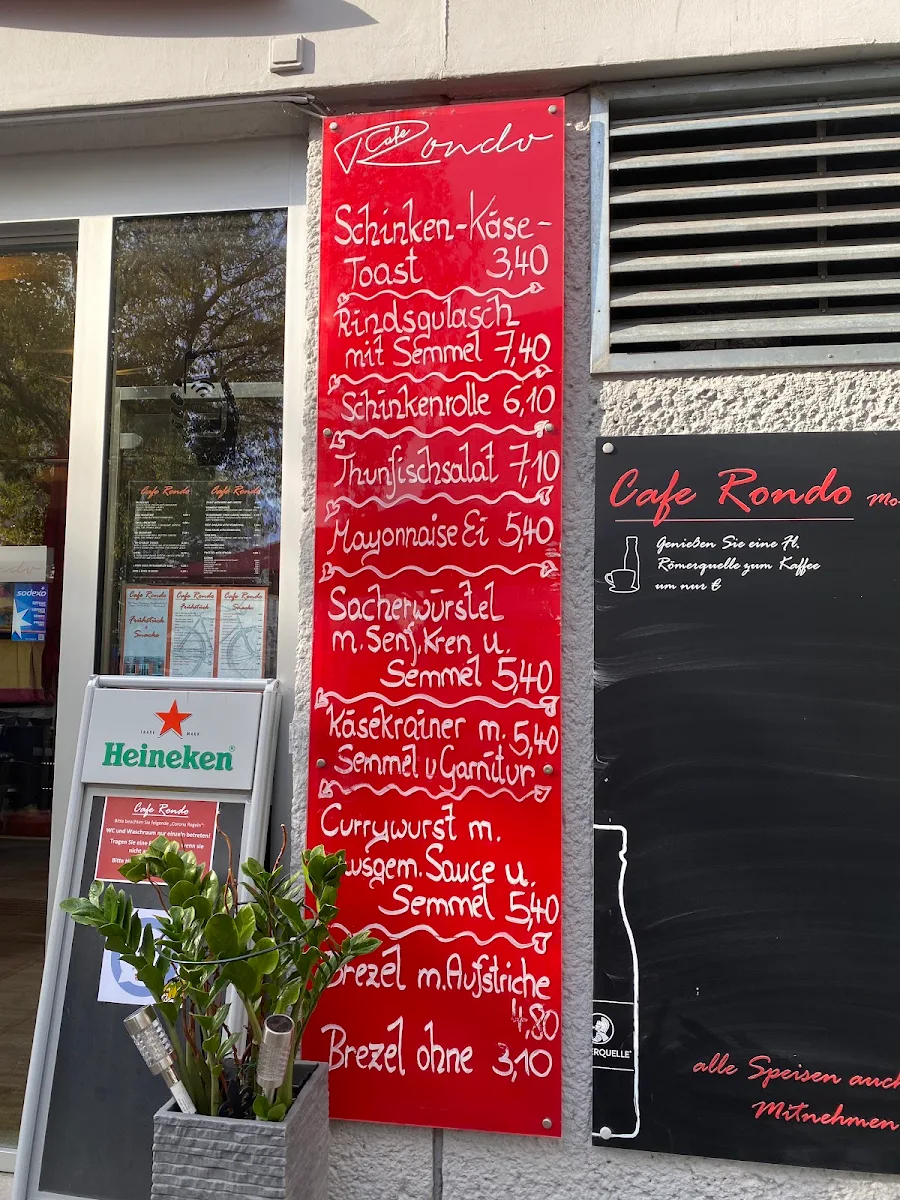 Cafe
Rondo
Schinken-Käse-
Toast 3,40
Rindsgulasch
mit Semmel 7,40
Schinkenrolle 6,10
Thunfischsalat 7,10
Mayonnaise Ei 5,40
Sacherwürstel
m. Senf, Kren u.
Semmel 5,40
Käsekrainer m. 5,40
Semmel u Garnitur
Currywurst m.
usgem. Sauce u.
Semmel 5,40
Brezel m. Aufstriche
4,80
Brezel ohne 3,10
Cafe Rondo Mo-
Genießen Sie eine Fl.
Römerquelle zum Kaffee
um nur €
ERQUELLE
alle Speisen auch
Mitnehmen
Cafe Rondo Cafe Rondo
Cafe Rondo Cafe Rondo Cafe Rondo
Frühstück Frühstück Snacks
Snacks
sodexo
TRADE MARK
Heineken®
Cafe Rondo
Bitte beachten Sie folgende „Corona Regeln":
WC und Waschraum nur einzeln betreten!
Tragen Sie eine
wenn sie
nicht
Bitte